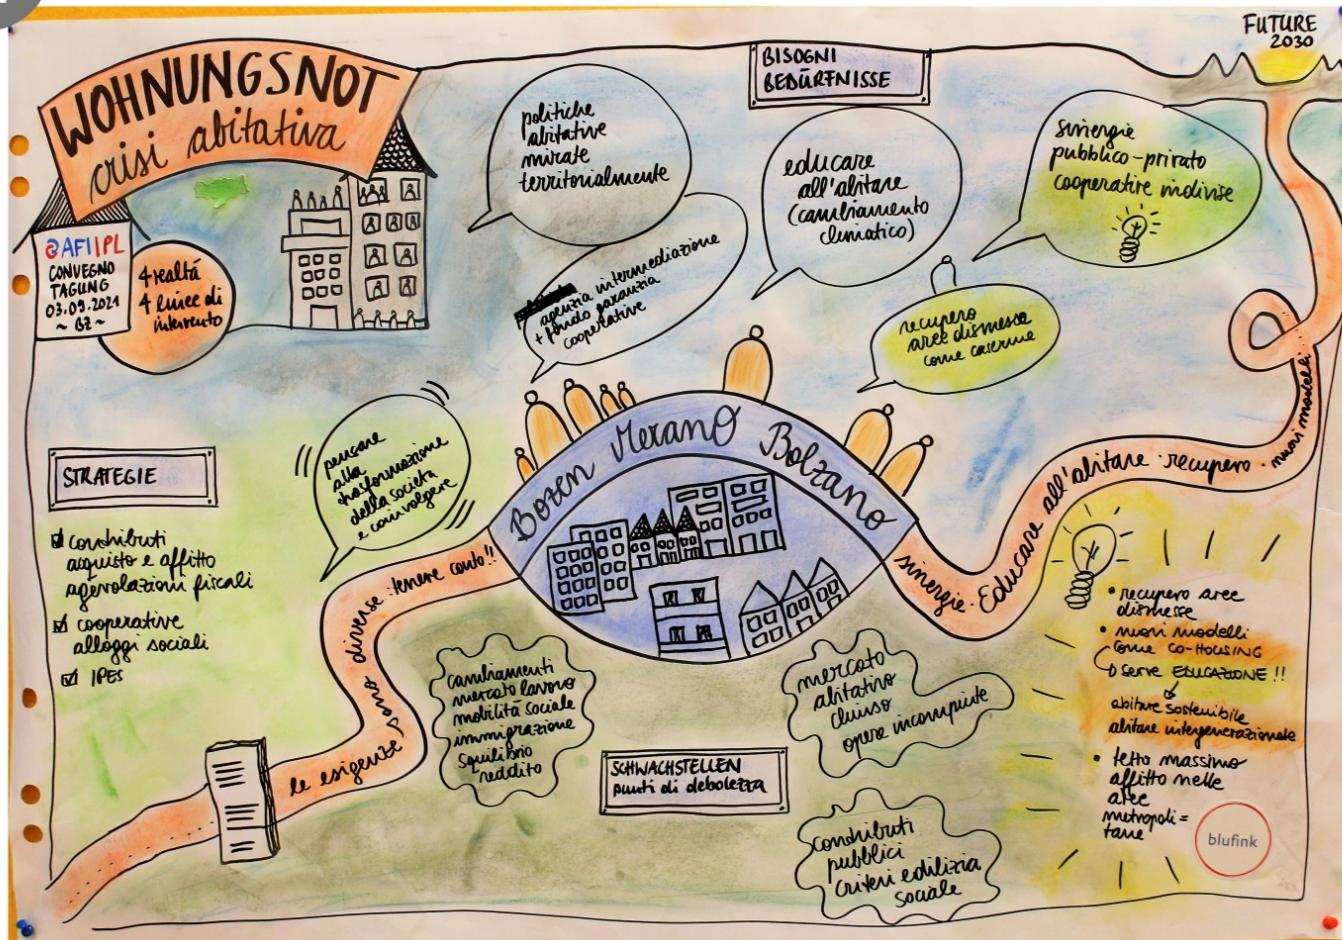 WOHNUNGSNOT
crisi abitativa
AFI IPL
CONVEGNO
TAGUNG
03.09.2021
~ BZ ~
4 realtá
4 linee di
intervento
politiche
abitative
mirate
territorialmente
agenzia intermediazione
+ fondo garanzia
cooperative
BISOGNI
BEDÜRFNISSE
educare
all'abitare
(cambiamento
climatico)
sinergie
pubblico-privato
cooperative indivise
FUTURE
2030
recupero
aree dismesse
come caserme
pensare
alla
trasformazione
della società
e coinvolgere
STRATEGIE
contributi
acquisto e affitto
agevolazioni fiscali
cooperative
alloggi sociali
IPES
Bozen Merano Bolzano
le esigenze sono diverse · tenere conto!!
sinergie · Educare all'abitare · recupero · nuovi modelli
cambiamenti
mercato lavoro
mobilità sociale
immigrazione
squilibrio
reddito
SCHWACHSTELLEN
punti di debolezza
mercato
abitativo
chiuso
opere incompiute
contributi
pubblici
criteri edilizia
sociale
• recupero aree
dismesse
• nuovi modelli
come CO-HOUSING
serve EDUCAZIONE !!
abitare sostenibile
abitare intergenerazionale
• tetto massimo
affitto nelle
aree
metropoli=
tane
blufink